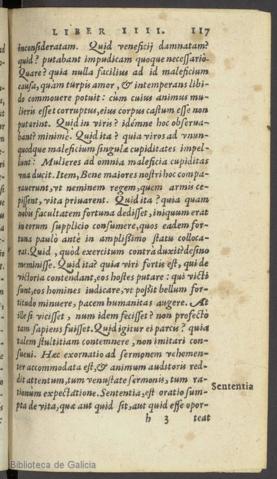 LIBER IIII. 117
inconsideratam. Quid veneficij damnatam?
quid? putabant impudicam quoque necessario.
Quare? quia nulla facilius ad id maleficium
causa, quam turpis amor, & intemperans libi-
do commouere potuit: cùm cuius animus mu-
lieris esset corruptus, eius corpus castum esse non
putarint. Quid in viris? idémne hoc obserua-
bant? minimè. Quid ita? quia viros ad vnum-
quodque maleficium singulæ cupiditates impel-
lunt: Mulieres ad omnia maleficia cupiditas
vna ducit. Item, Bene maiores nostri hoc compa-
rauerunt, vt neminem regem, quem armis ce-
pissent, vita priuarent. Quid ita? quia quam
nobis facultatem fortuna dedisset, iniquum erat
in eorum supplicio consumere, quos eadem for-
tuna paulò antè in amplissimo statu colloca-
rat. Quid, quòd exercitum contra duxit? desino
meminisse. Quid ita? quia viri fortis est, qui de
victoria contendant, eos hostes putare: qui victi
sunt, eos homines iudicare, vt possit bellum for-
titudo minuere, pacem humanitas augere. At
ille si vicisset, num idem fecisset? non profectò
tam sapiens fuisset. Quid igitur ei parcis? quia
talem stultitiam contemnere, non imitari con-
sueui. Hæc exornatio ad sermonem vehemen-
ter accommodata est, & animum auditoris red-
dit attentum, tum venustate sermonis, tum ra-
tionum expectatione. Sententia, est oratio sum-
Sententia
pta de vita, quæ aut quid sit, aut quid esse opor-
h 3 teat
Biblioteca de Galicia